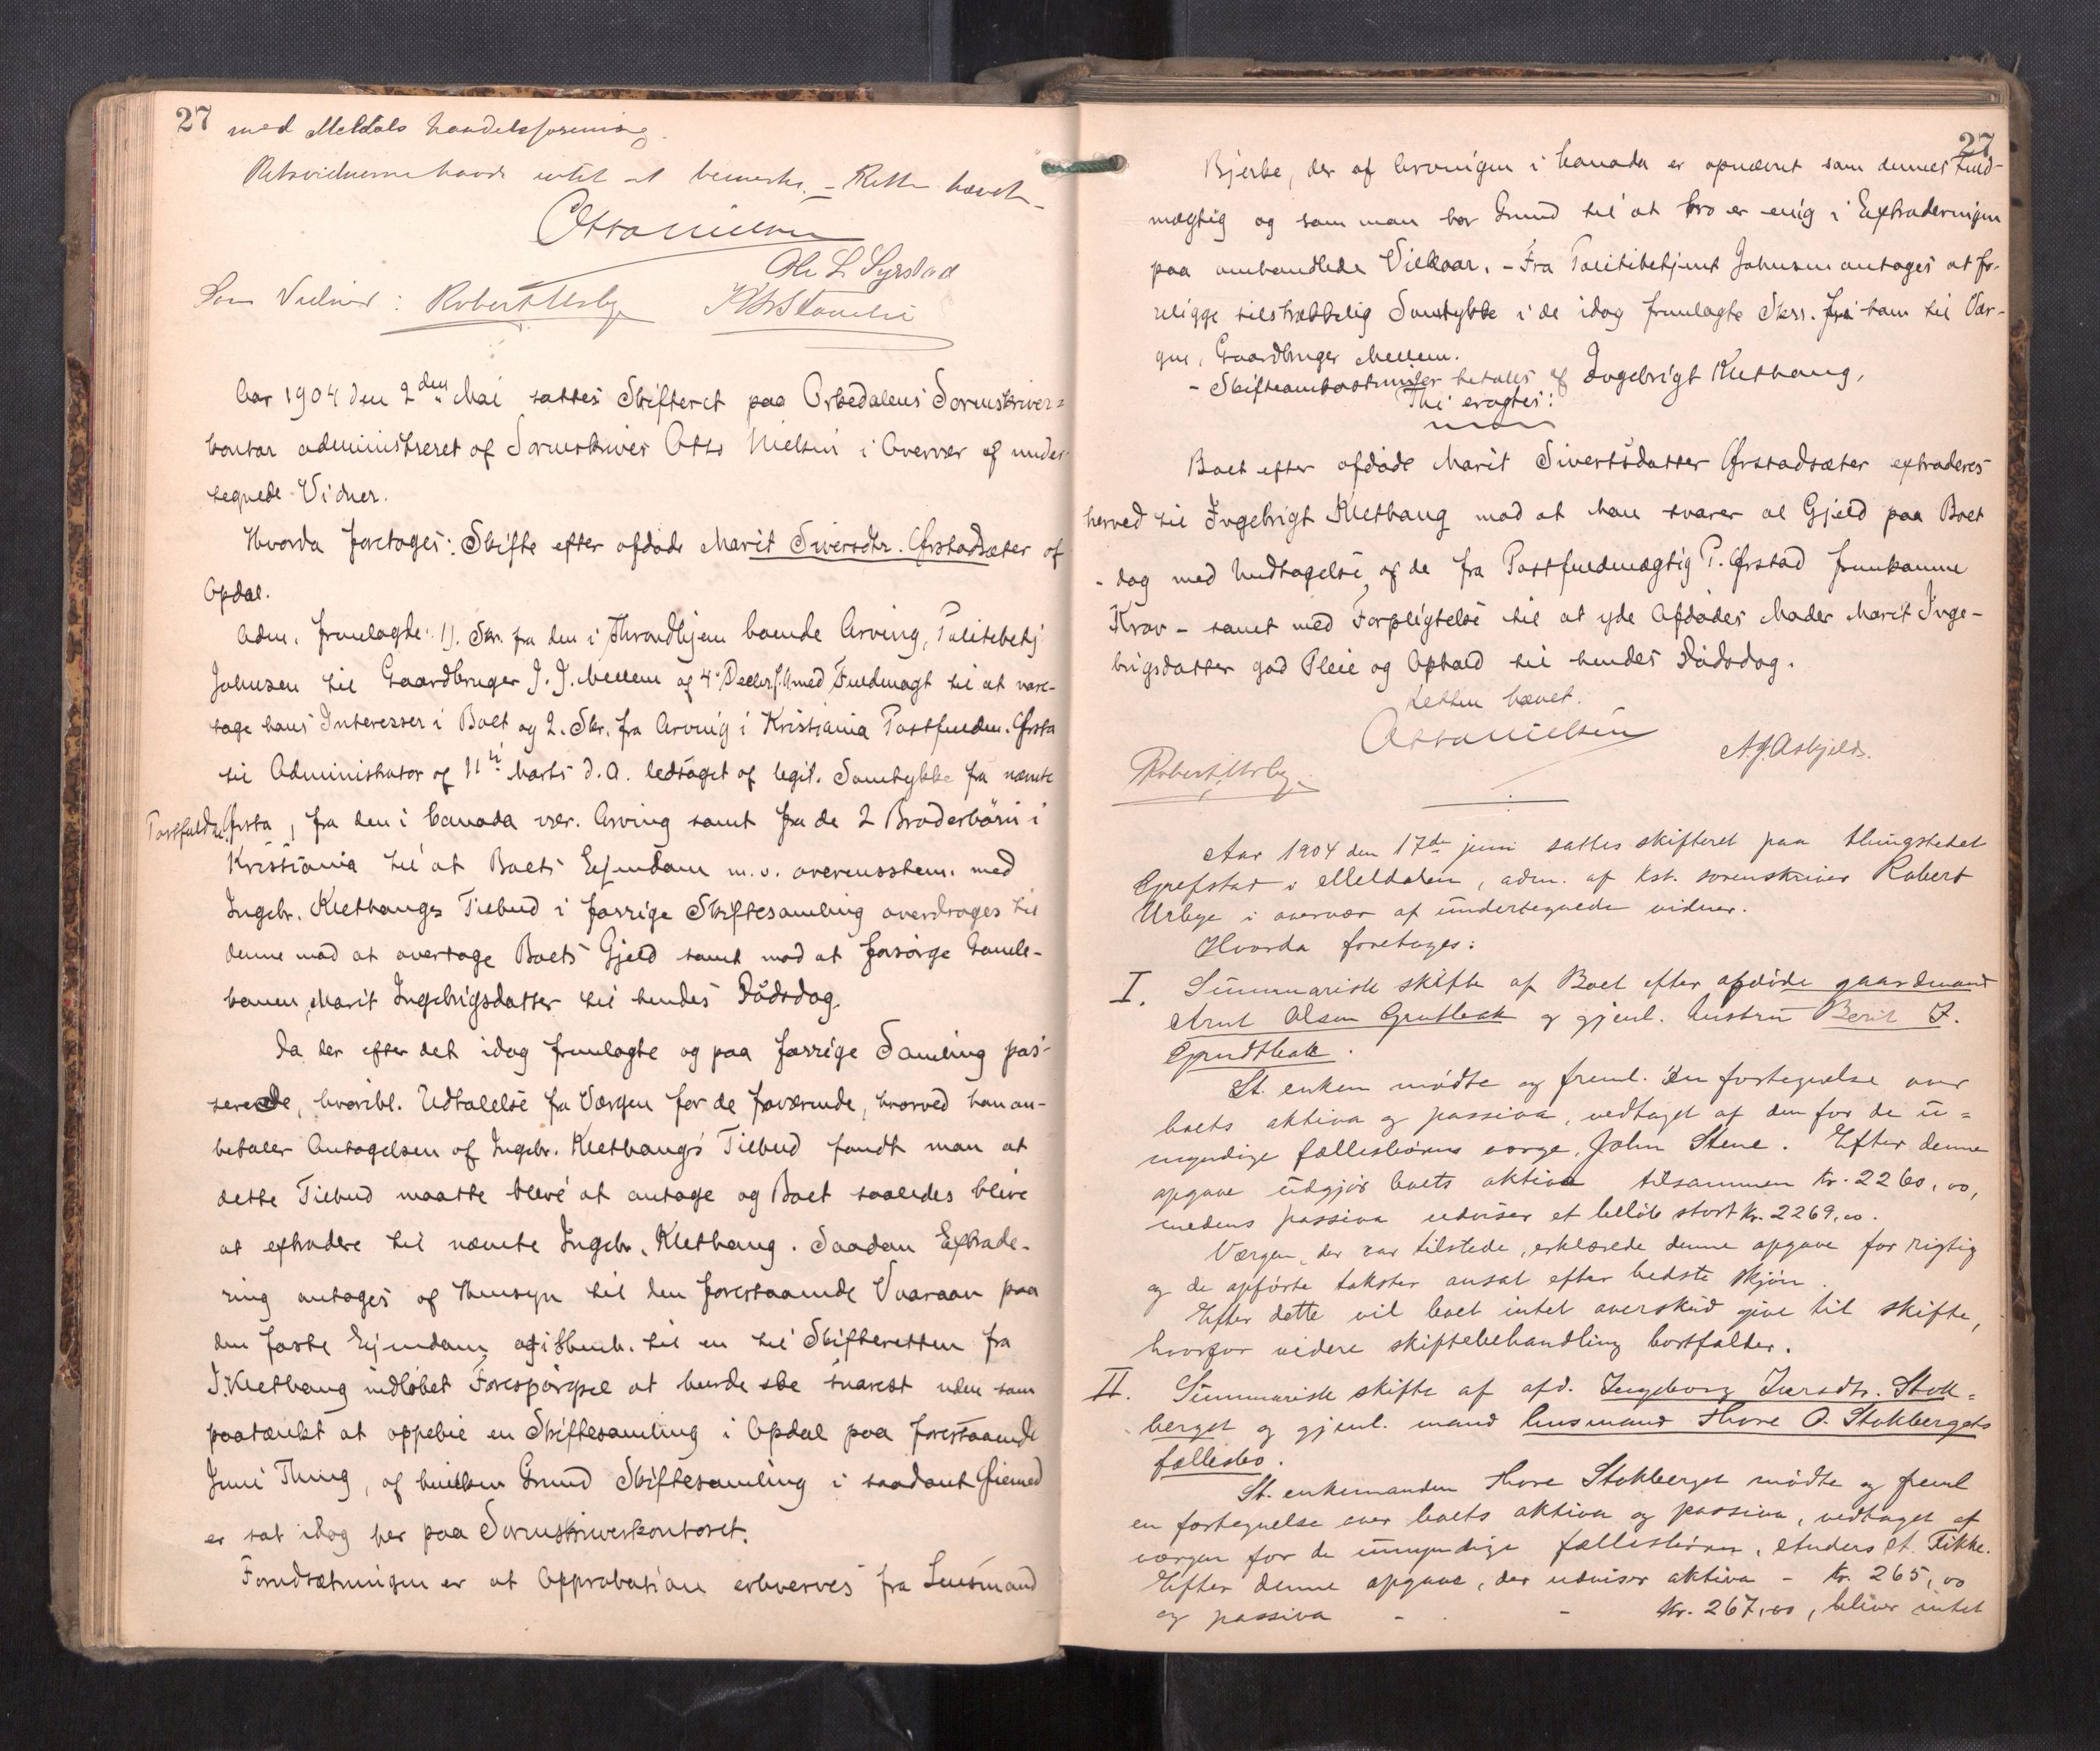 27
med Meldals handelsforening.
Retsvidnerne havde intet at bemerke. - Retten hævet -
Otto Nielsen
Ole L. Syrstad
Som Vidner: Robert Urbye
Aar 1904 den 2den Mai sattes Skifteret paa Orkedalens Sorenskriver-
kontor administreret af Sorenskriver Otto Nielsen i Overvær af under-
tegnede Vidner.
Hvorda foretages: Skifte efter afdøde Marit Sivertsdtr. Ørstadsæter af
Opdal.
Adm. fremlagde: 1). Skr. fra den i Throndhjem boende Arving, Politibetj.
Johnsen til Gaardbruger J. J. Mellem af 4. Decbr f. A. med Fuldmagt til at vare-
tage hans Interesser i Boet og 2. Skr. fra Arving i Kristiania Postfuldm. Ørsta
til Administrator af 11te Marts d. A. ledsaget af legit. Samtykke fra nævnte
Postfuldm. Ørsta, fra den i Canada vær. Arving samt fra de 2 Broderbørn i
Kristiania til at Boets Ejendom m. v. overensstem. med
Ingebr. Klethaugs Tilbud i forrige Skiftesamling overdrages til
denne mod at overtage Boets Gjeld samt mod at forsørge Gamle-
konen, Marit Ingebrigsdatter til hendes Dødsdag.
Da der efter det idag fremlagte og paa forrige Samling pas-
serede, hvoribl. Udtalelse fra Værgen for de fraværende, hvorved han an-
befaler Antagelsen af Ingebr. Klethaugs Tilbud fandt man at
dette Tilbud maatte blive at antage og Boet saaledes blive
at extradere til nævnte Ingebr. Klethaug. Saadan Extrade-
ring antages af Hensyn til den forestaaende Vaaraan paa
den faste Ejendom og i Henh. til en til Skifteretten fra
I. Klethaug indløbet Forespørgsel at burde ske snarest uden som
paatænkt at oppebie en Skiftesamling i Opdal paa forestaaende
Juni Thing, af hvilken Grund Skiftesamling i saadant Øiemed
er sat idag her paa Sorenskriverkontoret.
Forudsætningen er at Approbation erhverves fra Lensmand
27
Bjerke, der af Arvingen i Canada er opnævnt som dennes Fuld-
mægtig og som man har Grund til at tro er enig i Extraderingen
paa omhandlede Vilkaar. - Fra Politibetjent Johnsen antages at fo-
religge tilstrækkelig Samtykke i de idag fremlagte Skr. fra ham til Vær-
gen, Gaardbruger Mellem.
- Skifteomkostninger betales af Ingebrigt Klethaug.
Thi eragtes:
Boet efter afdøde Marit Sivertsdatter Ørstadsæter extraderes
herved til Ingebrigt Klethaug mod at han svarer al Gjeld paa Boet
- dog med Undtagelse af de fra Postfuldmægtig P. Ørstad fremkomne
Krav - samt med Forpligtelse til at yde Afdødes Moder Marit Inge-
brigsdatter god Pleie og Ophold til hendes Dødsdag.
Retten hævet.
Otto Nielsen
Robert Urbye
A. J. Asbjeld.
Aar 1904 den 17de juni sattes skifteret paa thingstedet
Grefstad i Meldalen, adm. af kst. sorenskriver Robert
Urbye i overvær af undertegnede vidner.
Hvorda foretages:
I. Summarisk skifte af Boet efter afdøde gaardmand
Arnt Olsen Grutbak og gjenl. hustru Berit J.
Grudtbak.
St. enken mødte og freml. en fortegnelse over
boets aktiva og passiva, vedtaget af den for de u-
myndige fællesbørns værge, John Stene. Efter denne
opgave udgjør boets aktiva tilsammen kr. 2260,00,
medens passiva udviser et beløb stort kr. 2269,00.
Værgen, der var tilstede, erklærede denne opgave for rigtig
og de opførte takster ansat efter bedste skjøn.
Efter dette vil boet intet overskud give til skifte,
hvorfor videre skiftebehandling bortfalder.
II. Summarisk skifte af afd. Ingeborg Iversdtr. Stok-
berget og gjenl. mand husmand Thore O. Stokbergets
fællesbo.
St. enkemanden Thore Stokberget mødte og freml
en fortegnelse over boets aktiva og passiva, vedtaget af
værgen for de umyndige fællesbørn, Anders Fikke.
Efter denne opgave, der udviser aktiva - kr. 265,00
og passiva - - kr. 267,00, bliver intet